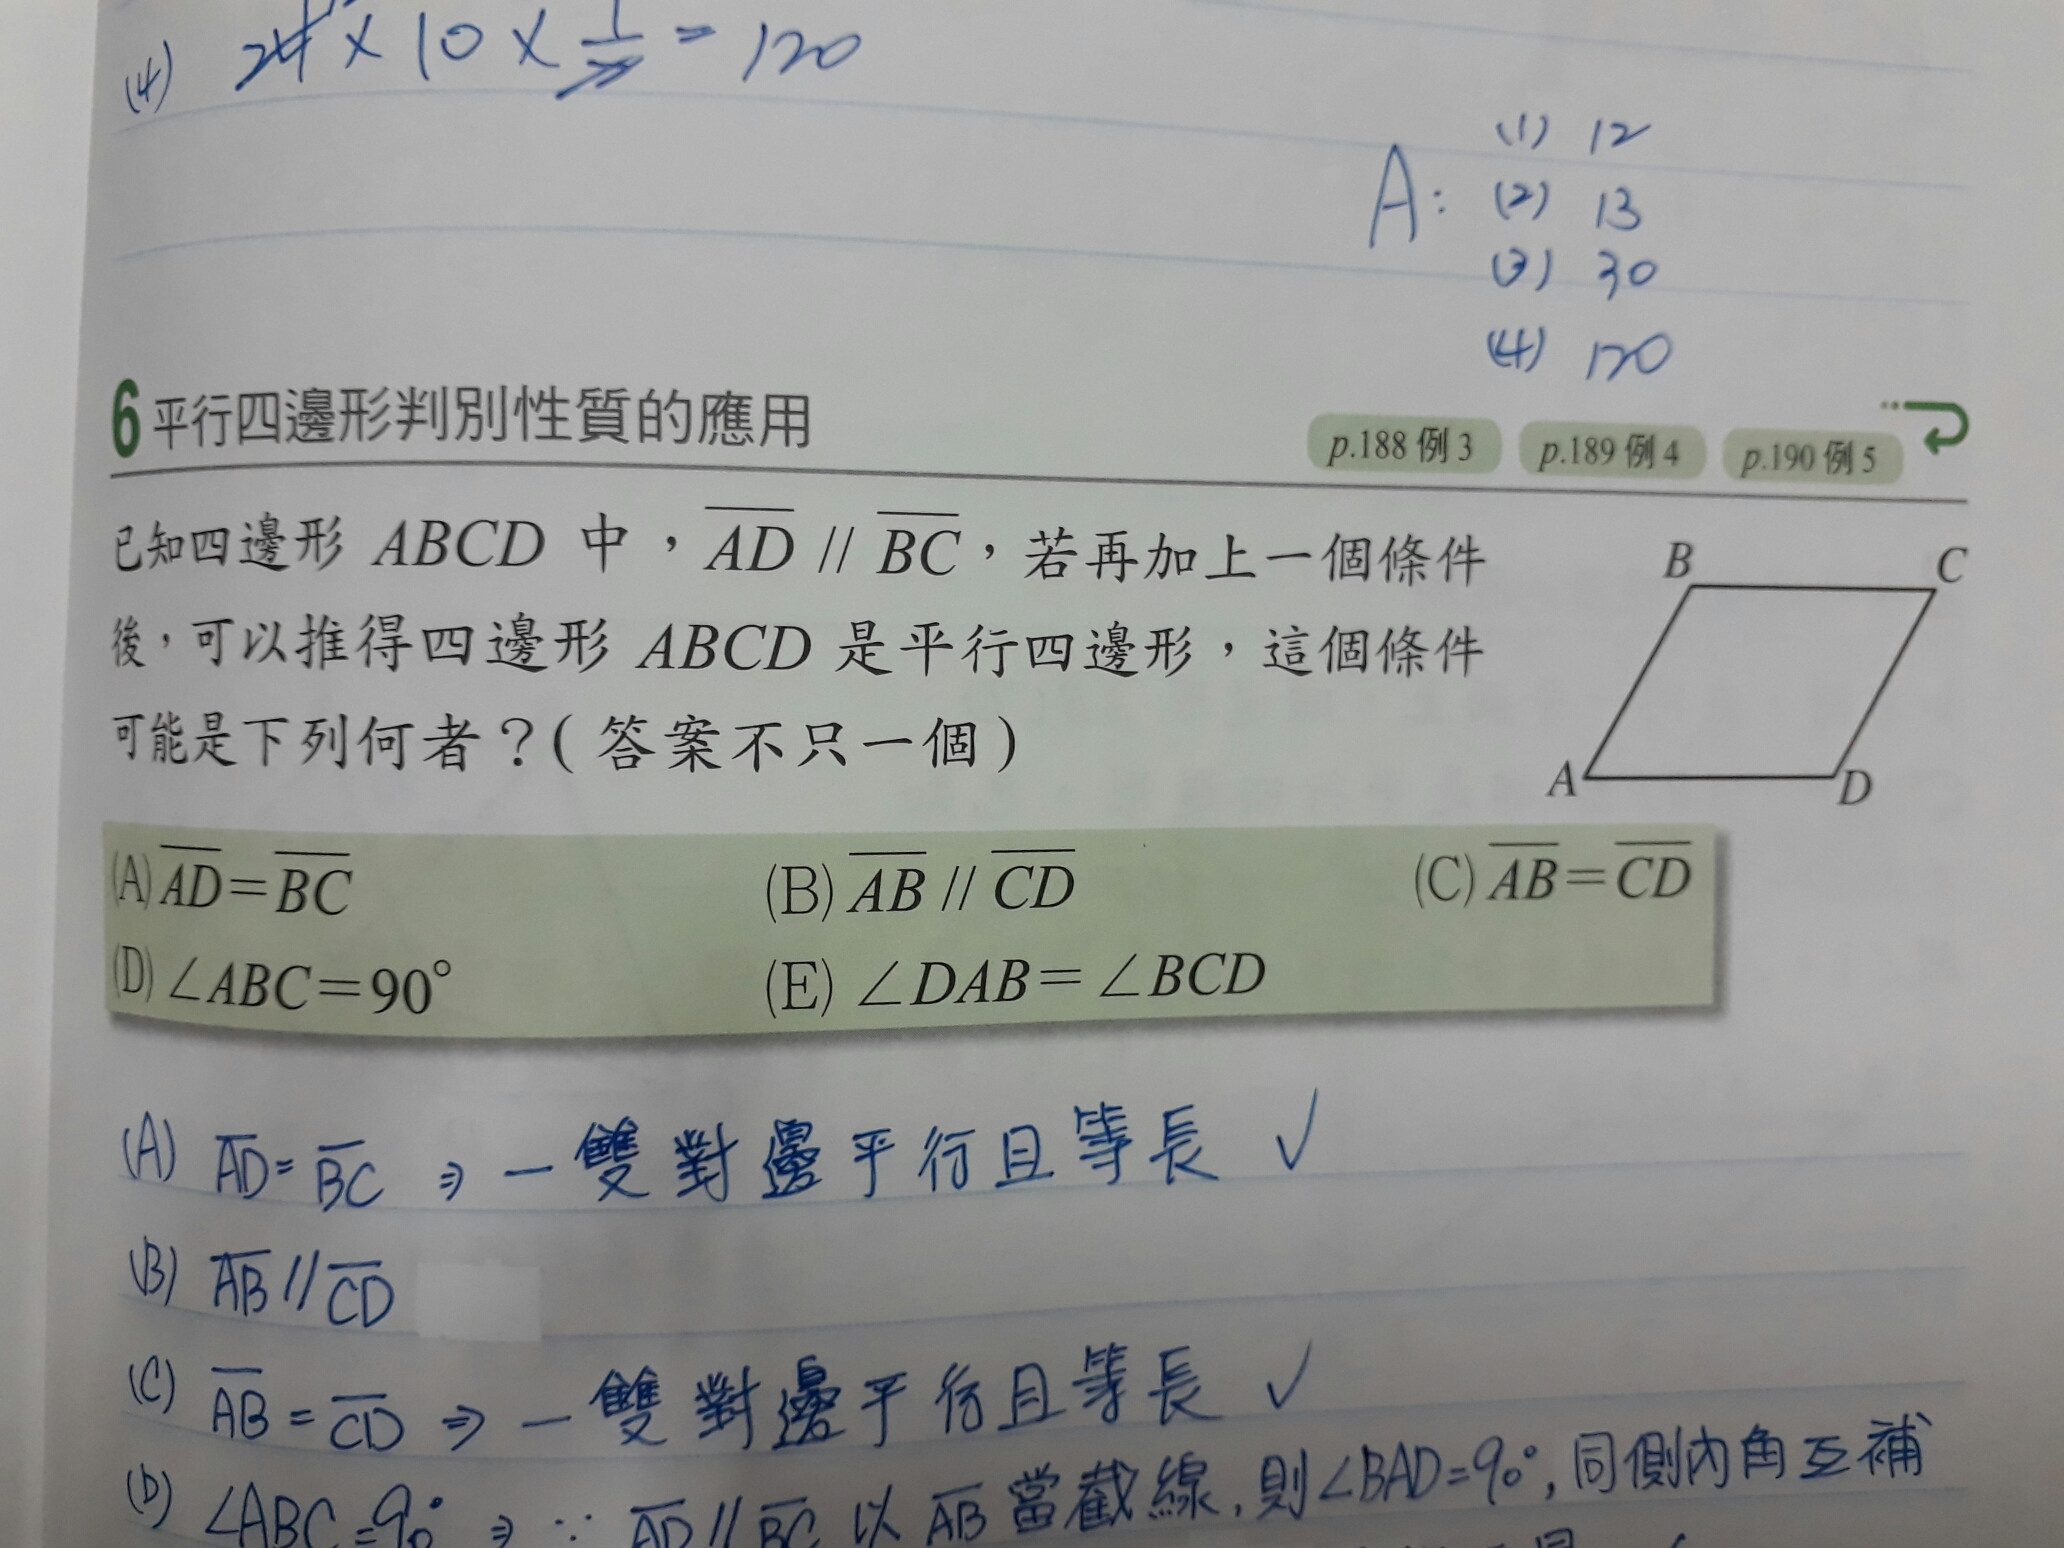 (4) 24 × 10 × 1/2 = 120
A: (1) 12
(2) 13
(3) 30
(4) 120
6 平行四邊形判別性質的應用
p.188 例 3 p.189 例 4 p.190 例 5
已知四邊形 ABCD 中，AD // BC，若再加上一個條件
後，可以推得四邊形 ABCD 是平行四邊形，這個條件
可能是下列何者？(答案不只一個)
B C
A D
(A) AD＝BC (B) AB // CD (C) AB＝CD
(D) ∠ABC＝90° (E) ∠DAB＝∠BCD
(A) AD = BC ⇒ 一雙對邊平行且等長 ✓
(B) AB // CD
(C) AB = CD ⇒ 一雙對邊平行且等長 ✓
(D) ∠ABC = 90° ⇒ ∵ AD // BC 以 AB 當截線, 則∠BAD=90°, 同側內角互補